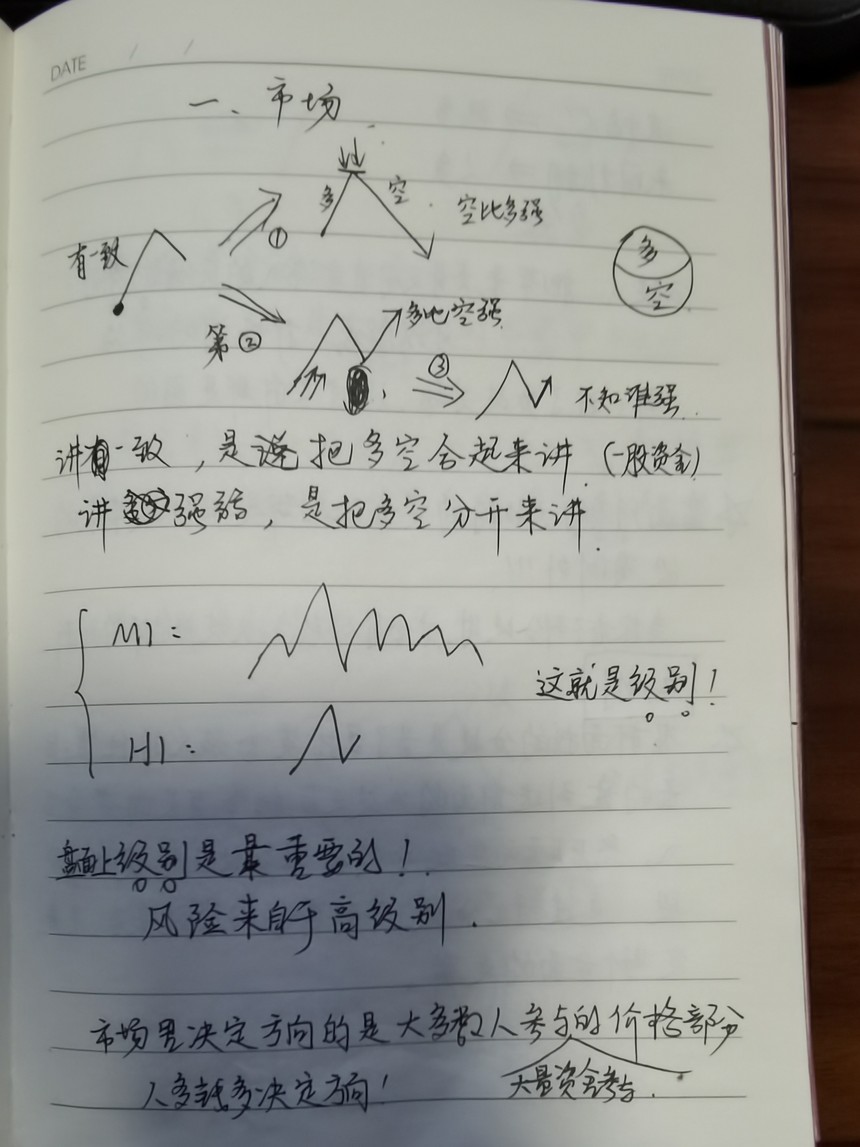 DATE / /
一、市场
多 空 空比多强
有一致 ①
多
空
第② 多比空强
③
不知谁强.
讲有一致，是说把多空合起来讲.(一股资金)
讲强弱，是把多空分开来讲.
M1:
这就是级别!
H1:
盘面上级别是最重要的!
风险来自于高级别.
市场里决定方向的是大多数人参与的价格部分
人多钱多决定方向! 大量资金参与.